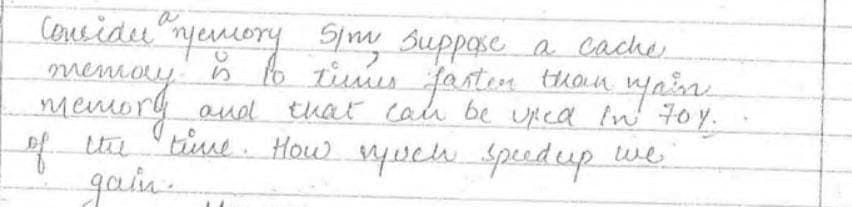 Consider a memory s/m, suppose a cache
memory is 10 times faster than main
memory and that can be used in 70%.
of the time. How much speedup we
gain.